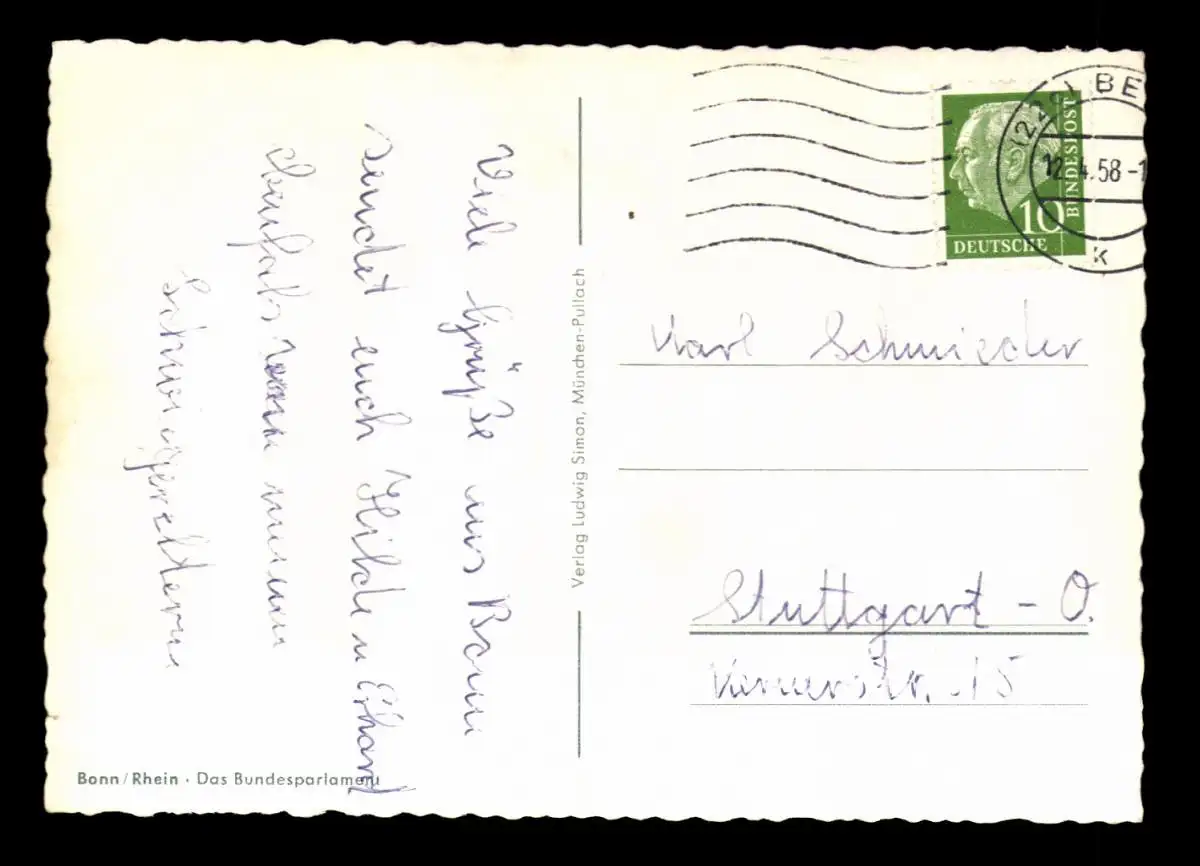 Viele Grüße aus Bonn
sendet euch Hilde u Erhard
ebenfals von meinen
Schwiegereltern
Bonn/Rhein · Das Bundesparlament
Verlag Ludwig Simon, München-Pullach
(22c) BE
12.4.58-1
k
BUNDESPOST
10
DEUTSCHE
Karl Schmieder
Stuttgart - O.
15